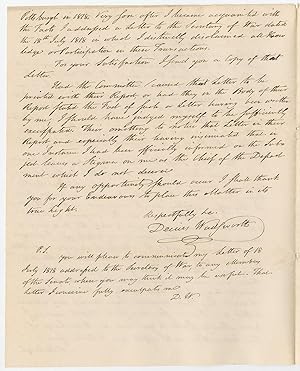 Pittsburgh in 1818. Very soon after I became acquainted with
the Facts I addressed a Letter to the Secretary of War dated
the 18th July 1818 in which I distinctly disclaimed all Know
ledge or Participation in these Transactions.
For your Satisfaction I send you a Copy of that
Letter.
Had the Committee caused that Letter to be
printed with their Report, or had they in the Body of their
Report stated the Fact of such a Letter having been written
by me, I should have judged myself to be sufficiently
exculpated. Their omitting to notice this Letter in their
Report and especially their having insinuated that in
one Instance I had been officially informed on the Sub
ject leaves a Stigma on me as the Chief of the Depart
ment which I do not deserve.
If any opportunity should occur I shall thank
you for your Endeavours to place this Matter in its
true light.
Respectfully &c.
Decius Wadsworth
P.S. you will please to communicate my Letter of 18
July 1818 addressed to the Secretary of War to any Members
of the Senate where you may think it may be useful. That
Letter I conceive fully exculpates me
D. W.